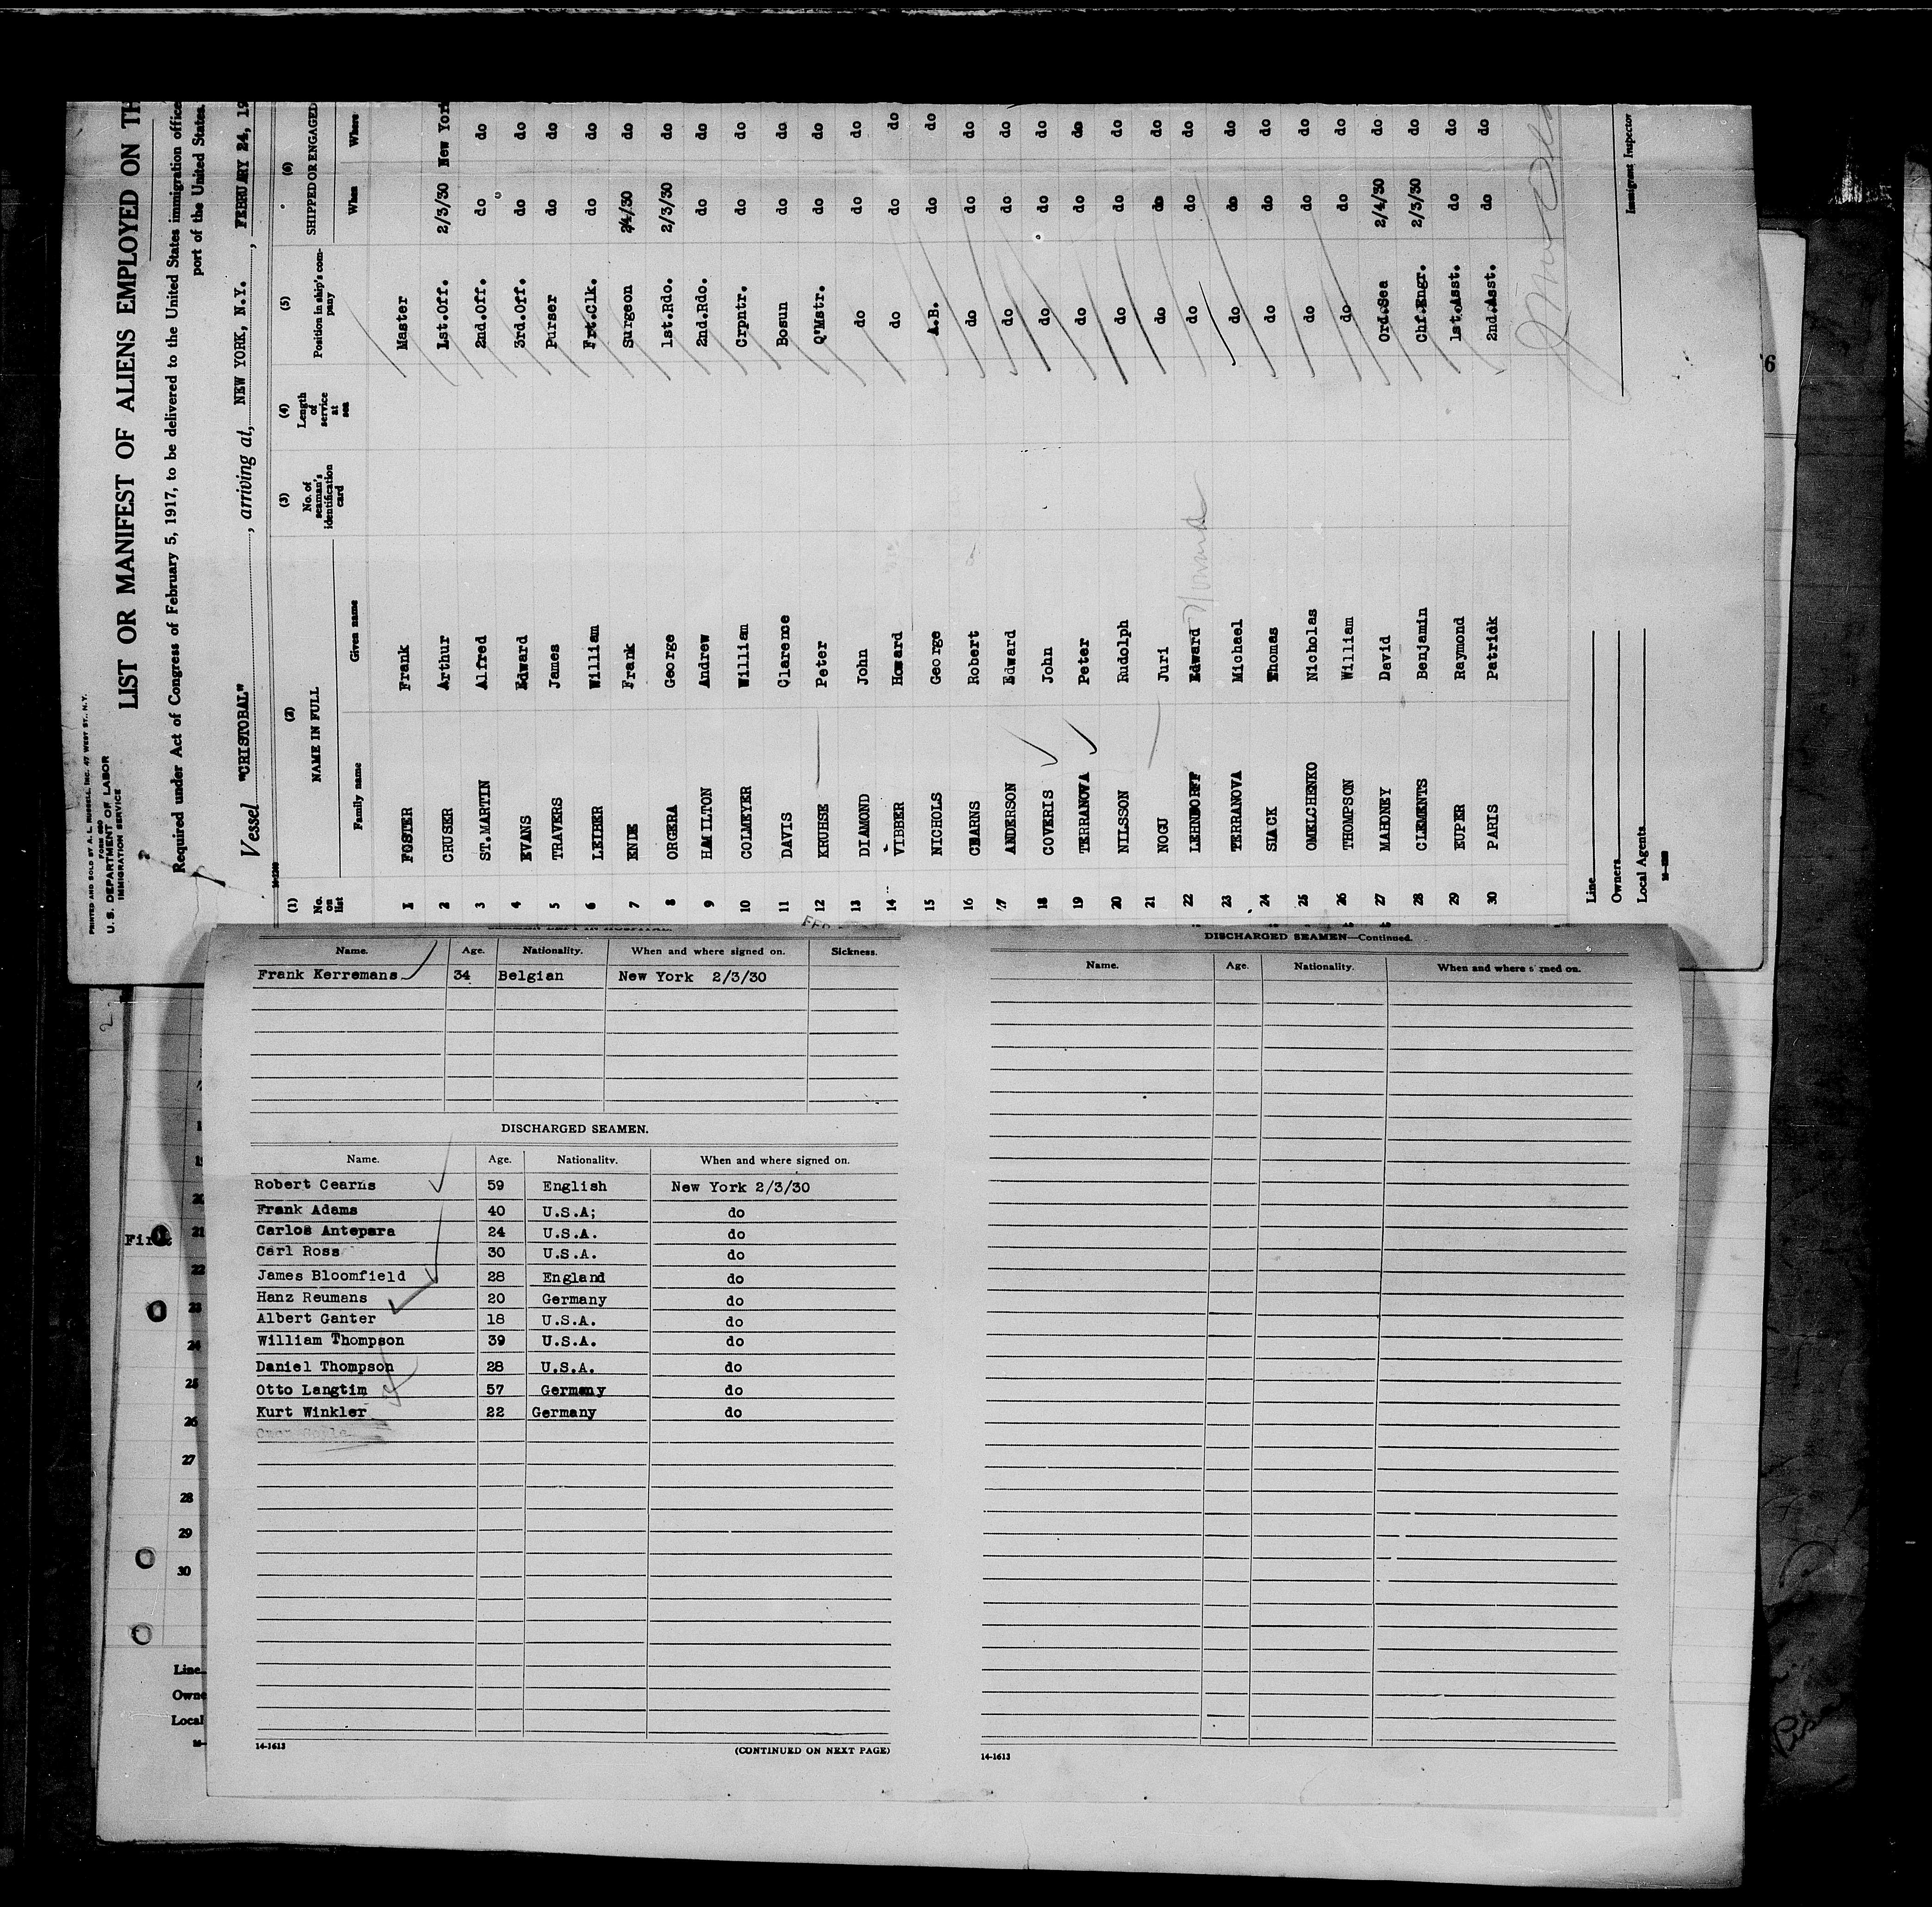 PRINTED AND SOLD BY A. L. RUSSELL, INC. 47 WEST ST., N.Y.
FORM 680
U. S. DEPARTMENT OF LABOR
IMMIGRATION SERVICE
LIST OR MANIFEST OF ALIENS EMPLOYED ON TH
Required under Act of Congress of February 5, 1917, to be delivered to the United States immigration office
port of the United States.
Vessel "CRISTOBAL", arriving at, NEW YORK, N.Y., FEBRUARY 24, 19
(1) (2) (3) (4) (5) (6)
No. on list NAME IN FULL No. of seaman's identification card Length of service at sea Position in ship's company SHIPPED OR ENGAGED
Family name Given name When Where
1 FOSTER Frank Master
2 CRUSER Arthur 1st.Off. 2/3/30 New York
3 ST.MARTIN Alfred 2nd.Off. do do
4 EVANS Edward 3rd.Off. do do
5 TRAVERS James Purser do do
6 LEIBER William Frt.Clk. do do
7 ENDE Frank Surgeon 2/4/30 do
8 ORGERA George 1st.Rdo. 2/3/30 do
9 HAMILTON Andrew 2nd.Rdo. do do
10 COLMEYER William Crpntr. do do
11 DAVIS Clarence Bosun do do
12 KRUHSE Peter Q'Mstr. do do
13 DIAMOND John do do do
14 VIBBER Howard do do do
15 NICHOLS George A.B. do do
16 CEARNS Robert do do do
17 ANDERSON Edward do do do
18 COVERIS John do do do
19 TERRANOVA Peter do do do
20 NILSSON Rudolph do do do
21 NOGU Juri do do do
22 LEHNDORFF Edward do do do
23 TERRANOVA Michael do do do
24 SLACK Thomas do do do
25 OMELCHENKO Nicholas do do do
26 THOMPSON William do do do
27 MAHONEY David Ord.Sea 2/4/30 do
28 CLEMENTS Benjamin Chf.Engr. 2/3/30 do
29 EUPER Raymond 1st.Asst. do do
30 PARIS Patridk 2nd.Asst. do do
Line
Owners
Local Agents
Immigrant Inspector
Name. Age. Nationality. When and where signed on. Sickness.
Frank Kerremans 34 Belgian New York 2/3/30
DISCHARGED SEAMEN.
Name. Age. Nationality. When and where signed on.
Robert Cearns 59 English New York 2/3/30
Frank Adams 40 U.S.A; do
Carlos Antepara 24 U.S.A. do
Carl Ross 30 U.S.A. do
James Bloomfield 28 England do
Hanz Reumans 20 Germany do
Albert Ganter 18 U.S.A. do
William Thompson 39 U.S.A. do
Daniel Thompson 28 U.S.A. do
Otto Langtim 57 Germany do
Kurt Winkler 22 Germany do
14-1613
(CONTINUED ON NEXT PAGE)
DISCHARGED SEAMEN—Continued.
Name. Age. Nationality. When and where signed on.
14-1613
First
20
21
22
23
24
25
26
27
28
29
30
Line
Owne
Local